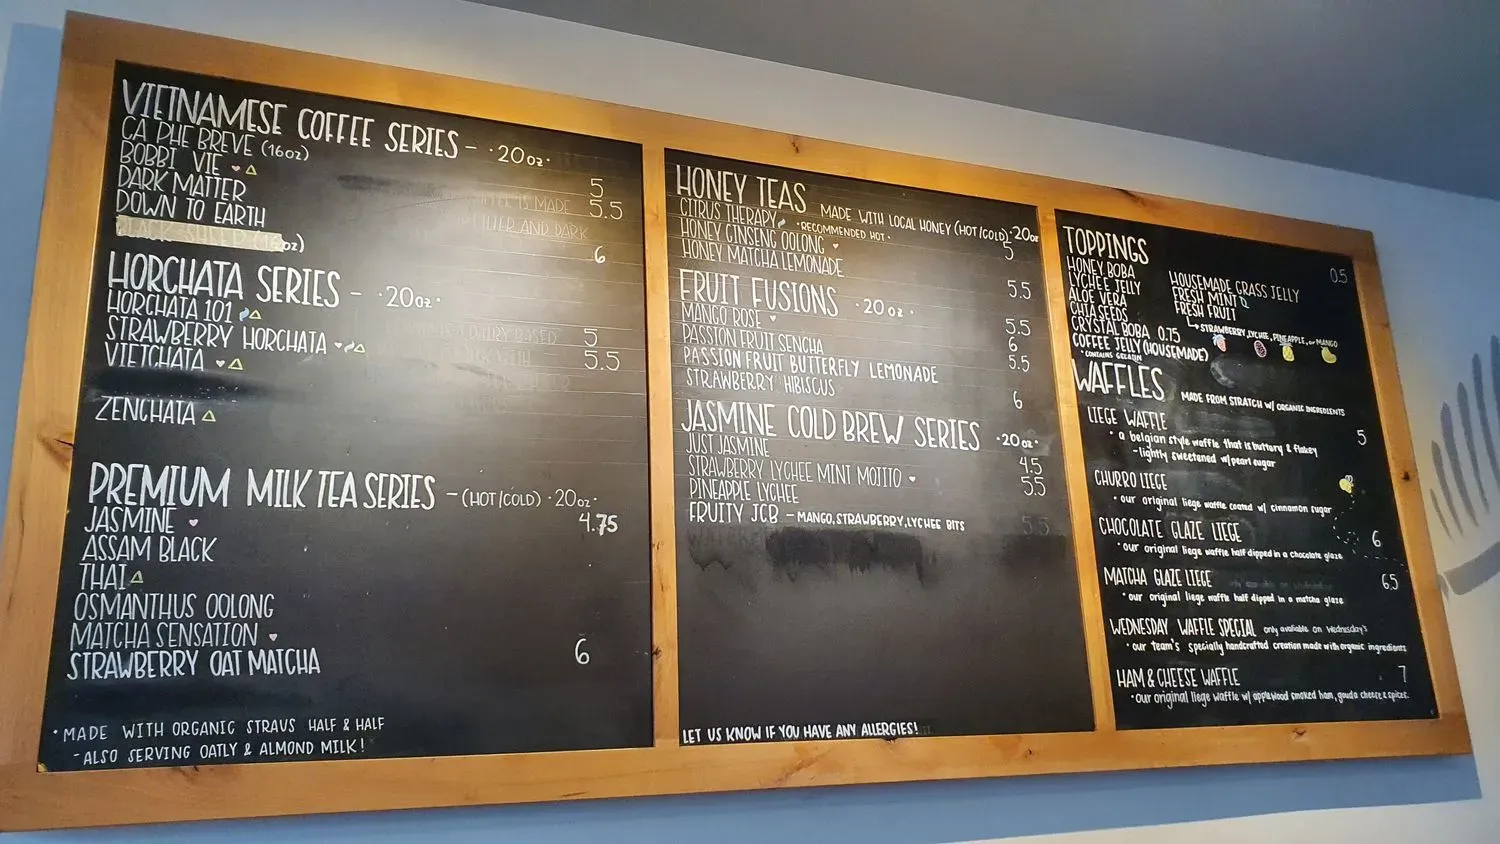 VIETNAMESE COFFEE SERIES - ·20oz·
CA PHE BREVE (16oz)
BOBBI VIE
5
DARK MATTER
5.5
DOWN TO EARTH
BLACK SHEEP (16oz)
6
HORCHATA SERIES - ·20oz·
HORCHATA 101
5
STRAWBERRY HORCHATA
5.5
VIETCHATA
ZENCHATA
PREMIUM MILK TEA SERIES - (HOT/COLD) ·20oz·
JASMINE
4.75
ASSAM BLACK
THAI
OSMANTHUS OOLONG
MATCHA SENSATION
STRAWBERRY OAT MATCHA
6
·MADE WITH ORGANIC STRAUS HALF & HALF
-ALSO SERVING OATLY & ALMOND MILK!
HONEY TEAS MADE WITH LOCAL HONEY (HOT/COLD) ·20oz
CITRUS THERAPY ·RECOMMENDED HOT·
5
HONEY GINSENG OOLONG
HONEY MATCHA LEMONADE
5.5
FRUIT FUSIONS ·20oz·
MANGO ROSE
5.5
PASSION FRUIT SENCHA
6
PASSION FRUIT BUTTERFLY LEMONADE
5.5
STRAWBERRY HIBISCUS
6
JASMINE COLD BREW SERIES ·20oz·
JUST JASMINE
4.5
STRAWBERRY LYCHEE MINT MOJITO
5.5
PINEAPPLE LYCHEE
FRUITY JCB - MANGO, STRAWBERRY, LYCHEE BITS
5.5
LET US KNOW IF YOU HAVE ANY ALLERGIES!
TOPPINGS
0.5
HONEY BOBA
LYCHEE JELLY
ALOE VERA
CHIA SEEDS
CRYSTAL BOBA 0.75
COFFEE JELLY (HOUSEMADE)
·CONTAINS GELATIN
HOUSEMADE GRASS JELLY
FRESH MINT
FRESH FRUIT
STRAWBERRY, LYCHEE, PINEAPPLE, or MANGO
WAFFLES MADE FROM STRATCH W/ ORGANIC INGREDIENTS
LIEGE WAFFLE
5
·a belgian style waffle that is buttery & flakey
-lightly sweetened w/pearl sugar
CHURRO LIEGE
·our original liege waffle coated w/ cinnamon sugar
CHOCOLATE GLAZE LIEGE
6
·our original liege waffle half dipped in a chocolate glaze
MATCHA GLAZE LIEGE
6.5
·our original liege waffle half dipped in a matcha glaze
WEDNESDAY WAFFLE SPECIAL only available on Wednesday's
·our team's specially handcrafted creation made with organic ingredients
HAM & CHEESE WAFFLE
7
·our original liege waffle w/ applewood smoked ham, gouda cheese & spices.